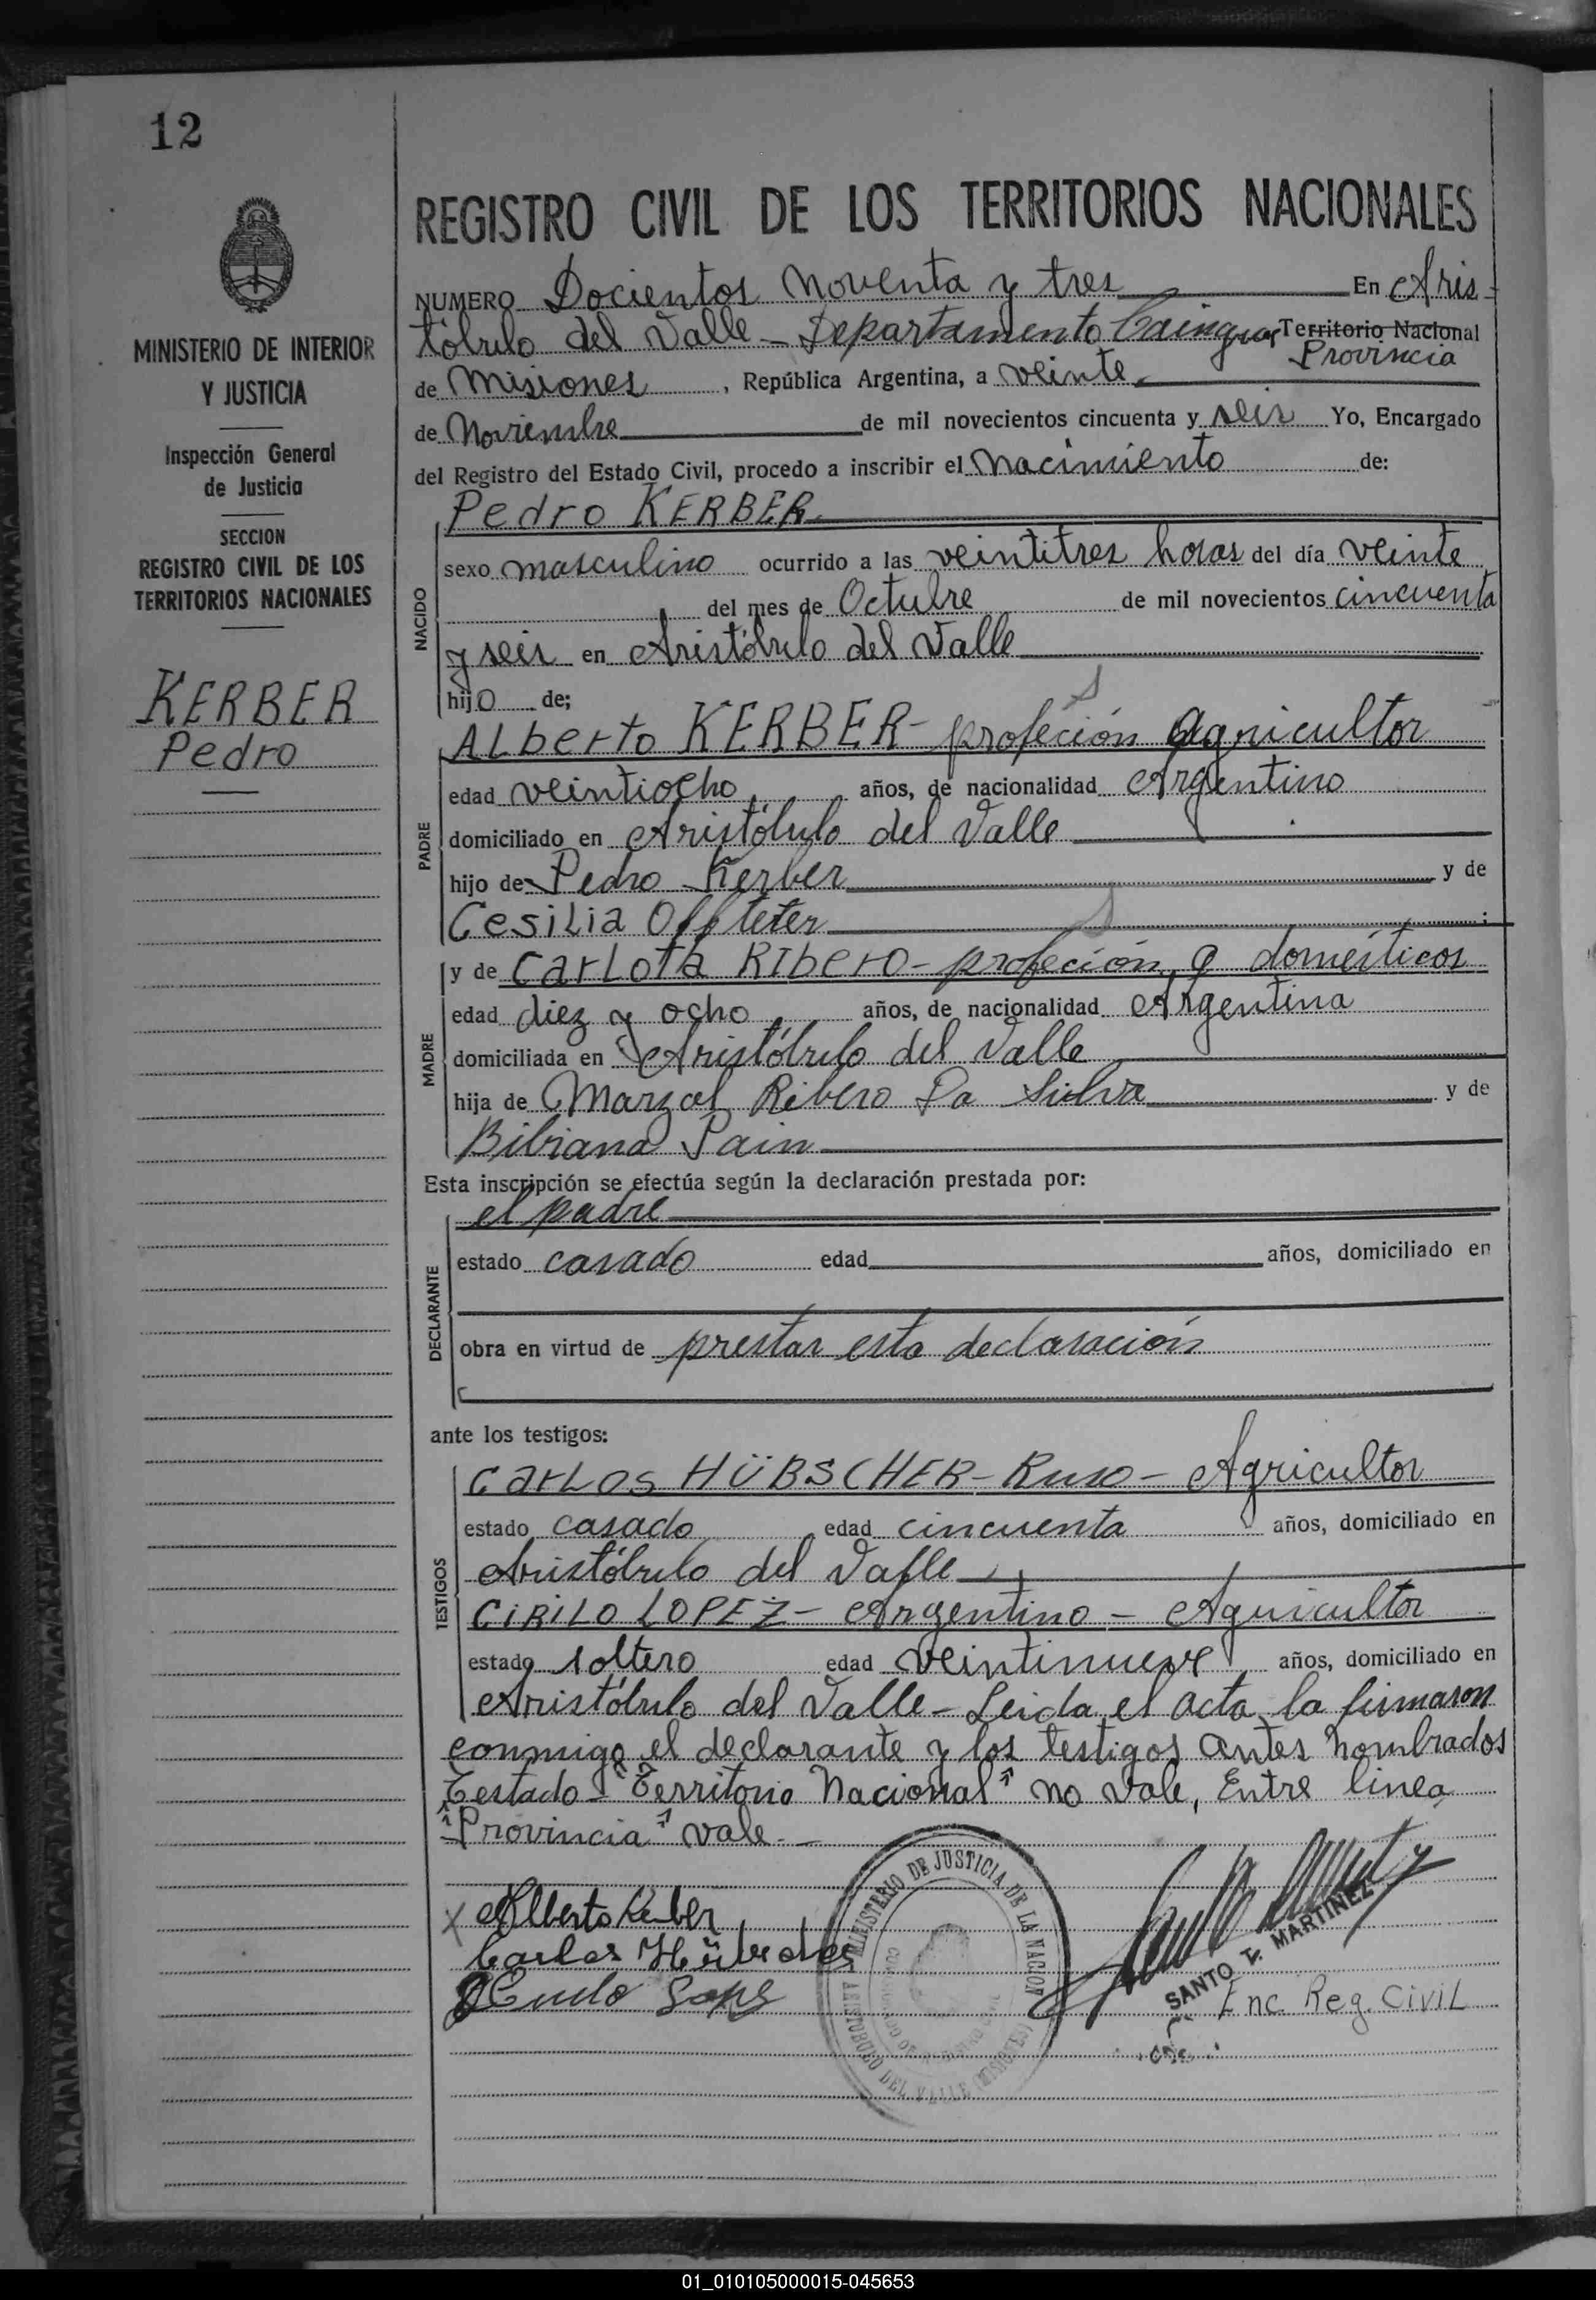 12
MINISTERIO DE INTERIOR
Y JUSTICIA
Inspección General
de Justicia
SECCION
REGISTRO CIVIL DE LOS
TERRITORIOS NACIONALES
KERBER
Pedro
REGISTRO CIVIL DE LOS TERRITORIOS NACIONALES
NUMERO Docientos Noventa y tres En Aris-
tóbulo del Valle - Departamento Cainguas Territorio Nacional
Provincia
de Misiones, República Argentina, a veinte
de Noviembre de mil novecientos cincuenta y seis Yo, Encargado
del Registro del Estado Civil, procedo a inscribir el Nacimiento de:
Pedro KERBER
NACIDO
sexo masculino ocurrido a las veintitres horas del día veinte
del mes de Octubre de mil novecientos cincuenta
y seis en Aristóbulo del Valle
hijo de;
PADRE
Alberto KERBER - profeción agricultor
edad veintiocho años, de nacionalidad Argentino
domiciliado en Aristóbulo del Valle
hijo de Pedro Kerber y de
Cesilia Offteter
MADRE
y de Carlota Ribero - profeción q domésticos
edad diez y ocho años, de nacionalidad Argentina
domiciliada en Aristóbulo del Valle
hija de Marzal Ribero Da Silva y de
Bibiana Pain
Esta inscripción se efectúa según la declaración prestada por:
DECLARANTE
el padre
estado casado edad años, domiciliado en
obra en virtud de prestar esta declaración
ante los testigos:
TESTIGOS
Carlos HÜBSCHER - Ruso - Agricultor
estado casado edad cincuenta años, domiciliado en
Aristóbulo del Valle
CIRILO LOPEZ - Argentino - Agricultor
estado soltero edad veintinueve años, domiciliado en
Aristóbulo del Valle - Leida el acta la firmaron
conmigo el declarante y los testigos antes nombrados
Testado "Territorio Nacional" no vale, Entre linea
"Provincia" vale.-
X Alberto Kerber
Carlos Hübscher
MINISTERIO DE JUSTICIA DE LA NACION
ARISTOBULO DEL VALLE (MISIONES)
SANTO T. MARTINEZ
Enc. Reg. Civil
01_010105000015-045653